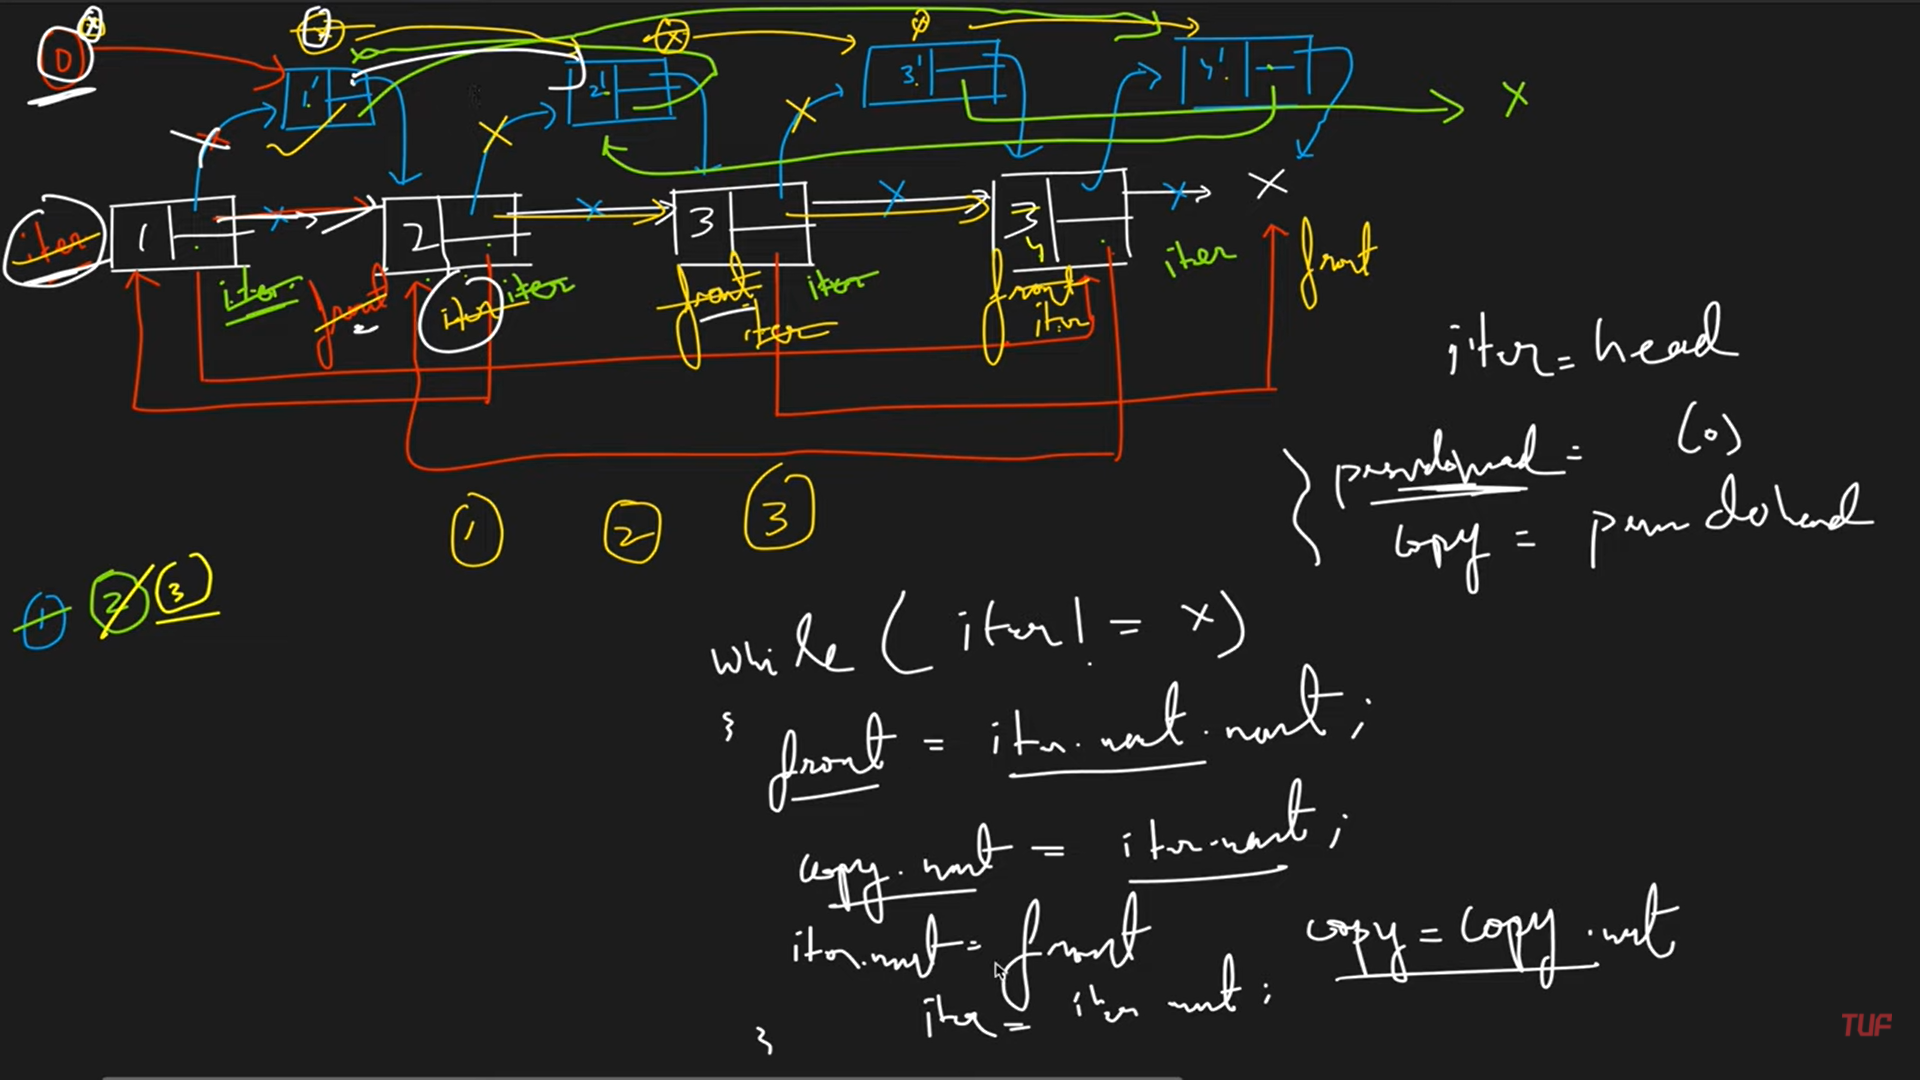 0 x
1' 2' 3' 4' X
1 2 3 3 X
4
iter iter front iter iter front iter front iter front
2 iter iter
1 2 3
1 2 3
iter = head
pseudohead = (0)
copy = pseudohead
while ( iter != x )
{ front = iter.next.next;
copy.next = iter.next;
iter.next = front
copy = copy.next
iter = iter next;
}
TUF